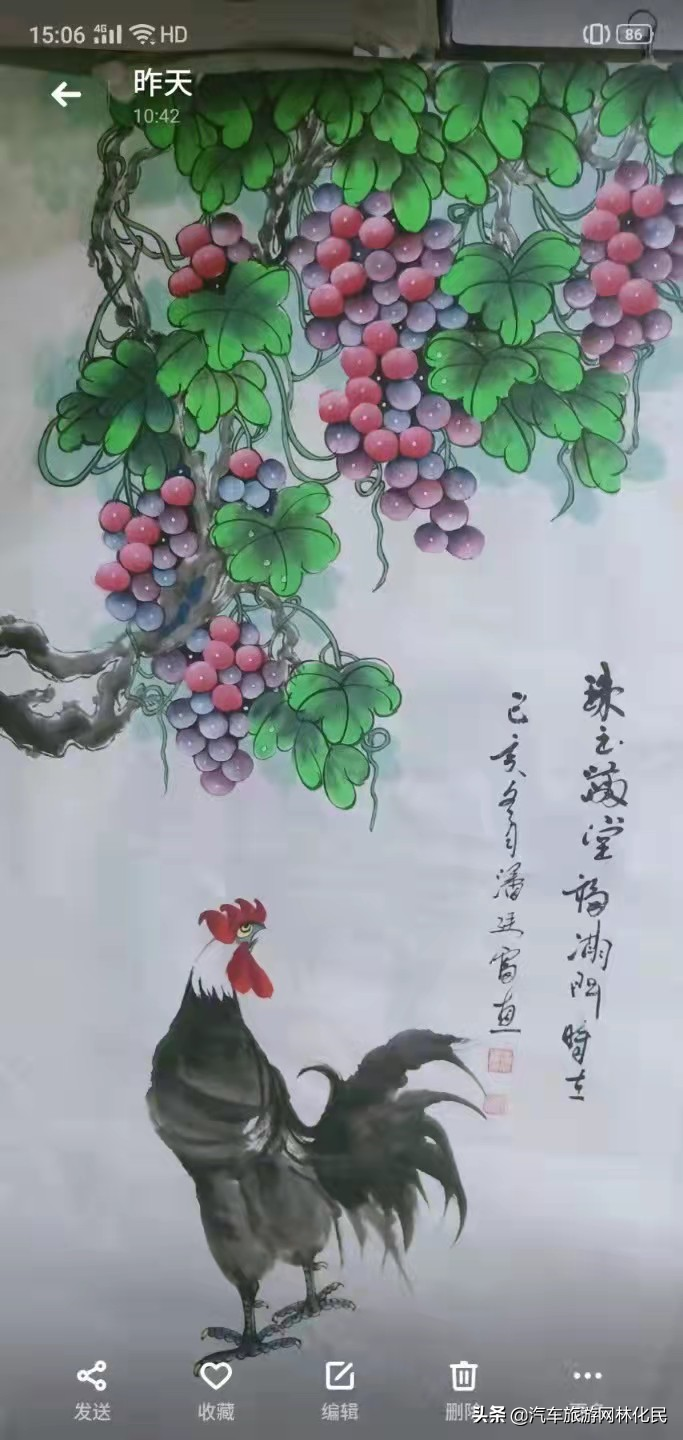 15:06 4G HD 86
昨天
10:42
珠玉满堂福满门時在
己亥冬月潘廷富画
发送 收藏 编辑 删
头条 @汽车旅游网林化民